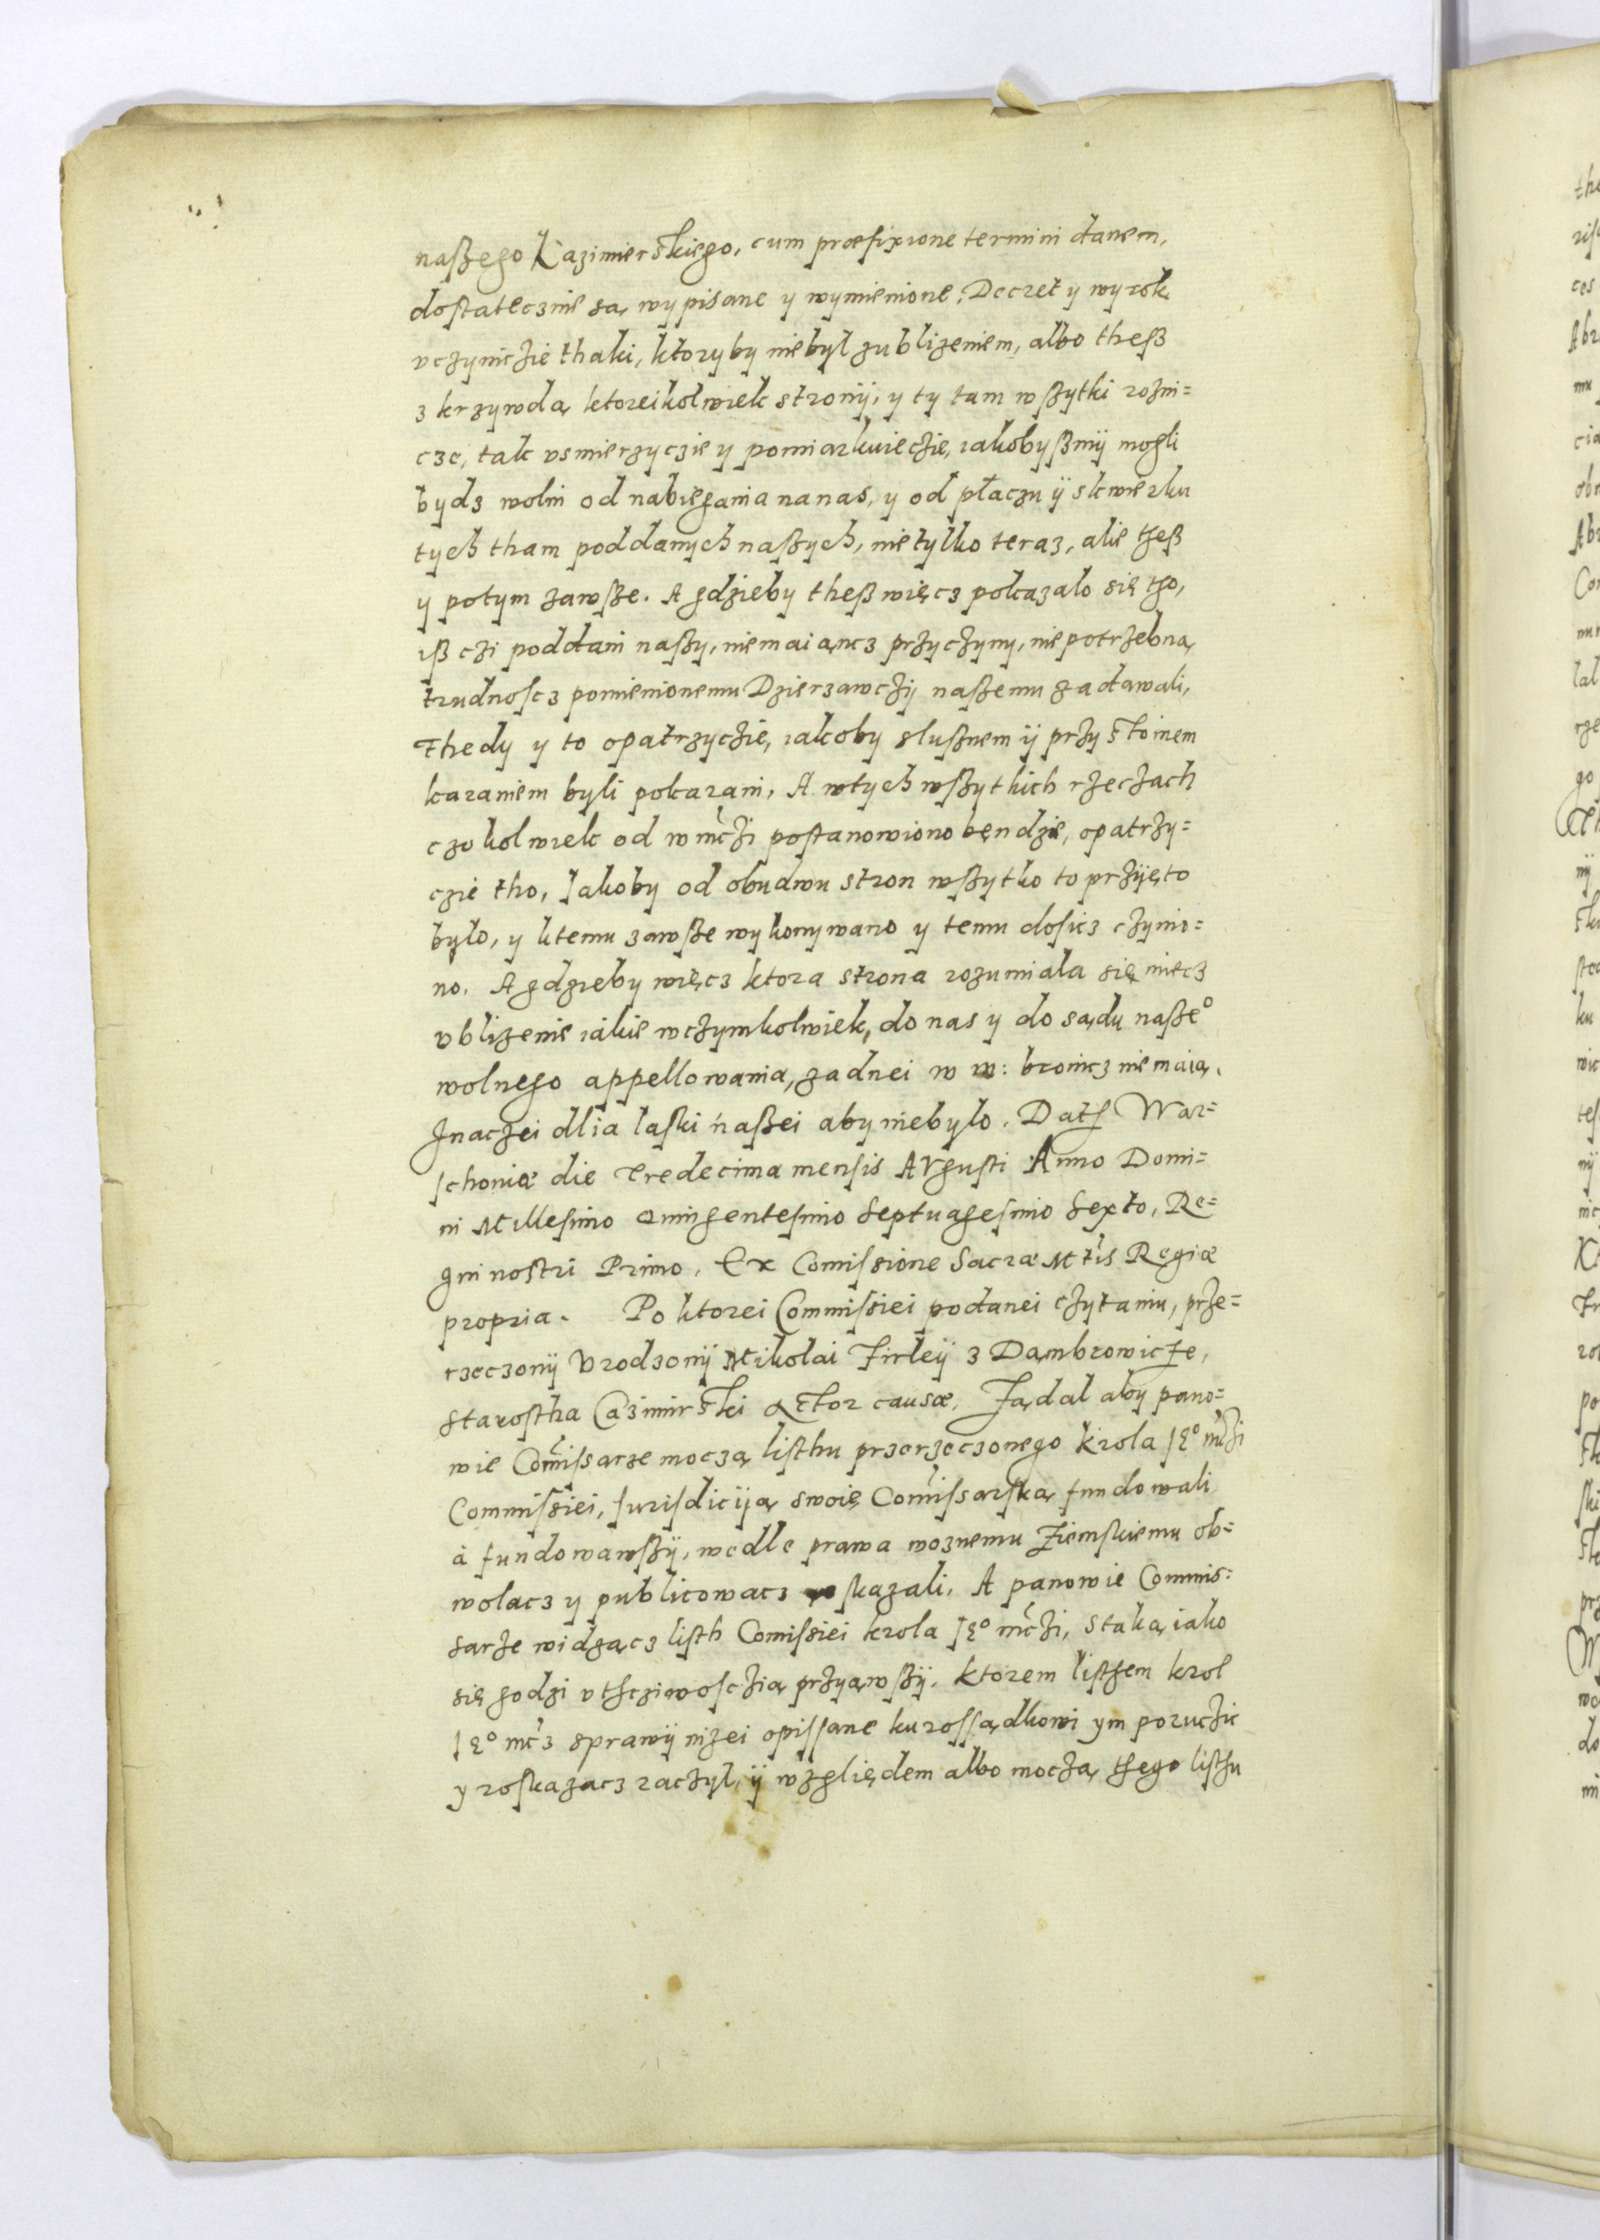 naszego Kazimierskiego, cum præfixione termini danem,
dostatecznie są wypisane y wymienione, Decret y wyrok
vczyniczie thaki, ktoryby niebyl zublizeniem, albo thesz
z krzywdą ktoreikolwiek stronÿ, y ty tam wszytki rozni=
cze, tak vsmierzyczie y pomiarkuieczie, iakobyszmÿ mogli
bydz wolni od nabiegania na nas, y od płaczu ÿ skwierku
tych tham poddanych naszych, nie tylko teraz, alie thesz
y potym zawsze. A gdzieby thesz więcz pokazalo się tho,
isz czi poddani naszy, nie maiącz przyczyny, niepotrzebną
trudnoscz pomienionemu Dzierzawczÿ naszemu zadawali,
Thedy y to opatrzyczie, iakoby slusznem ÿ przystoinem
karaniem byli pokarani, A wtych wszytkich rzeczach
czokolwiek od w mczi postanowiono będzie, opatrzy=
czie tho, Jakoby od obudwu stron wszytko to przÿęto
bylo, y ktemu zawsze wykonywano y temu dosicz czynio=
no. A gdzieby więcz ktora strona rozumiala się miecz
vblizenie iakie wczymkolwiek, do nas y do sądu naszeo
wolnego appellowania, zadnei w w: bronicz nie maią.
Jnaczei dlia laski naszei aby niebylo. Dat War=
schoniæ die tredecima mensis AVgusti Anno Domi=
ni Millesimo Quingentesimo Septuagesimo Sexto, Re=
gni nostri Primo. Ex Comissione Sacræ Mtis Regiæ
propria. Po ktorei Commissiei podanei czytaniu, prze=
rzeczonÿ Vrodzonÿ Mikolai Firleÿ z Dambrowicze,
Starostha Cazimirski Actor causæ, Ządal aby pano=
wie Comissarze moczą listhu przerzeczonego krola Jeo mczi
Commissiei, Jurisdicÿą swoię Comissarską fundowali
á fundowawszÿ, wedle prawa woznemu Ziemskiemu ob=
wolacz y publicowacz skazali, A panowie Commis=
sarze widzącz listh Comissiei krola Jeo mczi, s taką iako
się godzi vthcziwosczią przyąwszÿ. ktorem listhem krol
Jeo mcz sprawÿ nizei opissane ku rossądkowi ym poruczic
y roskazacz raczyl, ÿ wzgliędem albo moczą thego listhu